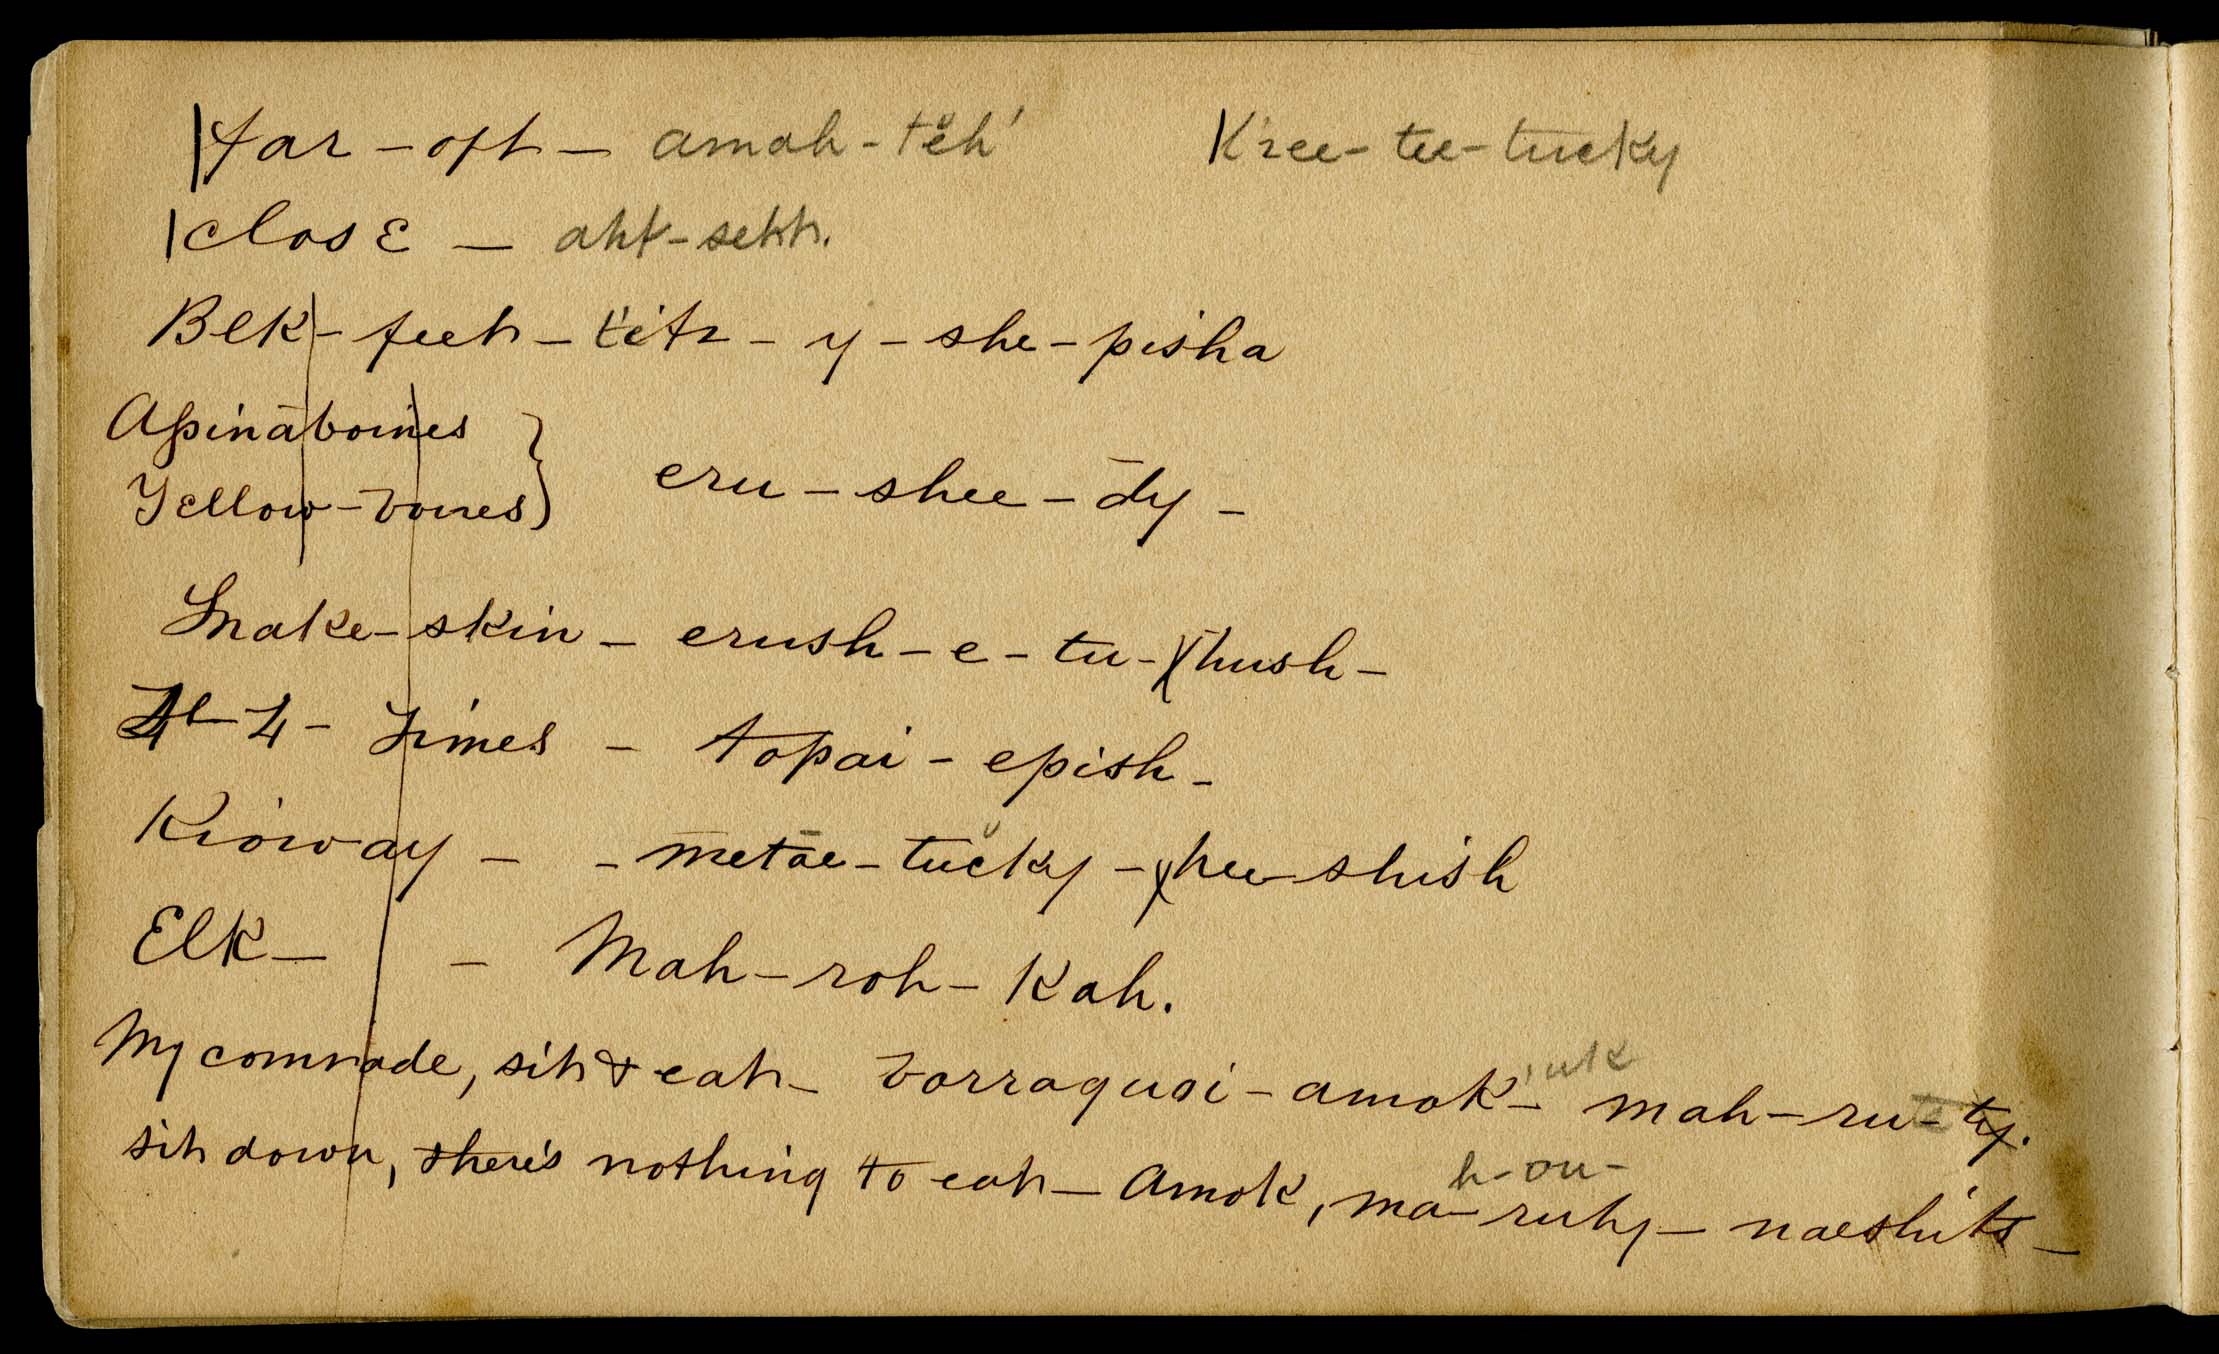 far-off - amah-tĕh' K'ree-tee-tucky
close - aht-sehh.
Blk-feet - tetz-y-she-pisha
Assinaboines
Yellow-bones } eru-shee-dy-
Snake-skin - erush-e-tu-hush-
4- times - topai-epish-
Kioway - - metae-tucky-hee shish
Elk - - Mah-roh-Kah.
My comrade, sit & eat - barraquai-amok- mah-ru-ty.
sit down, there's nothing to eat - Amok, mah-ou-ruhy - naeshits-